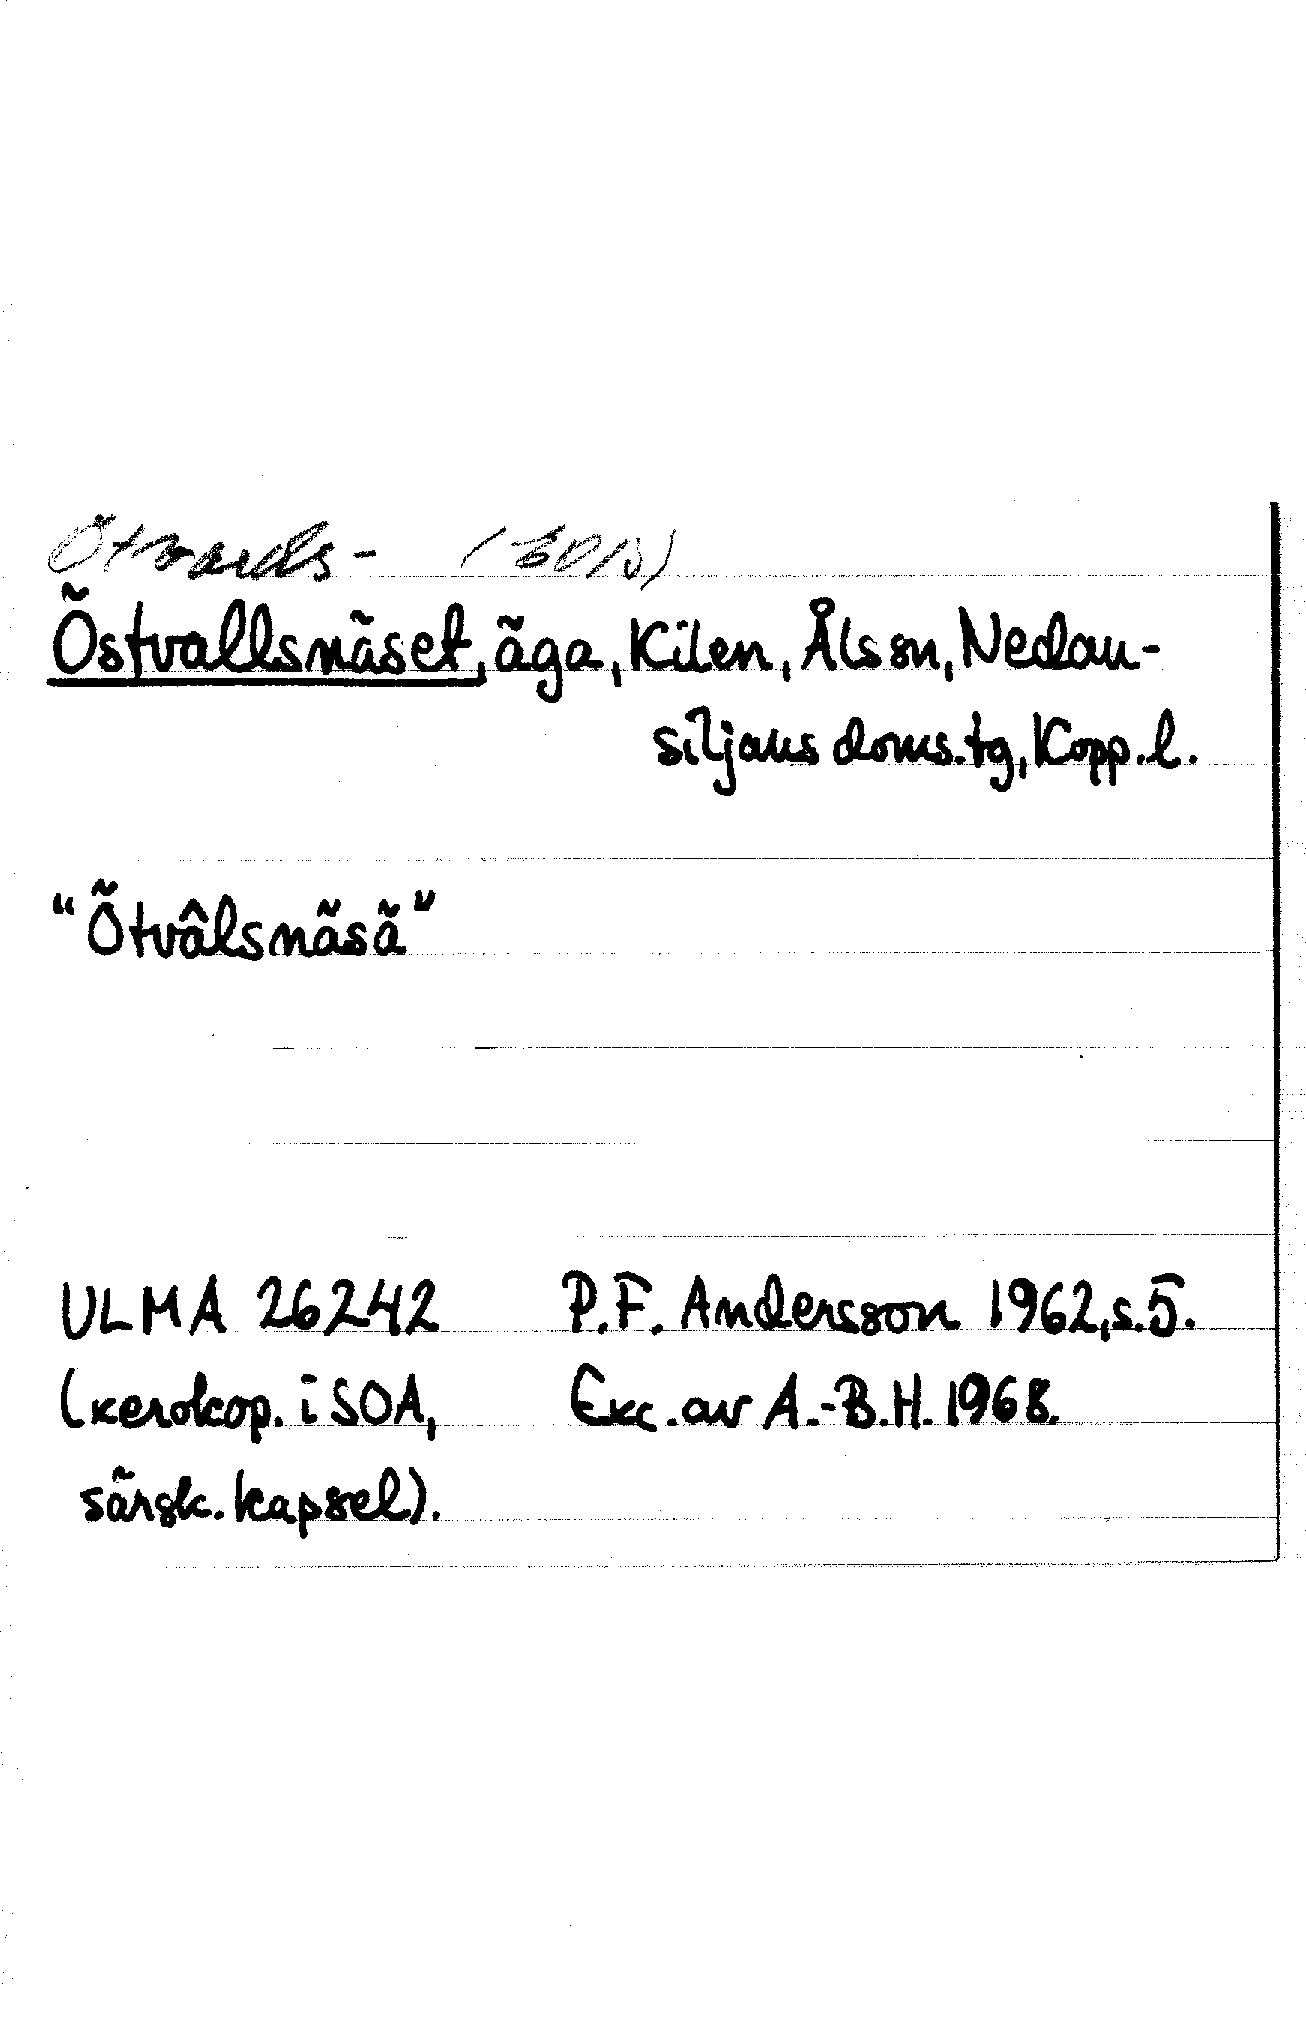 Ötvards-
Östvallsnäset, äga, Kilen, Åls sn, Nedan-
siljans doms.tg, Kopp.l.
"Ötvâlsnäsä"
ULMA 26242 P.F. Andersson 1962, s.5.
(xerokop. i SOA, Exc. av A.-B.H. 1968.
särsk. kapsel).